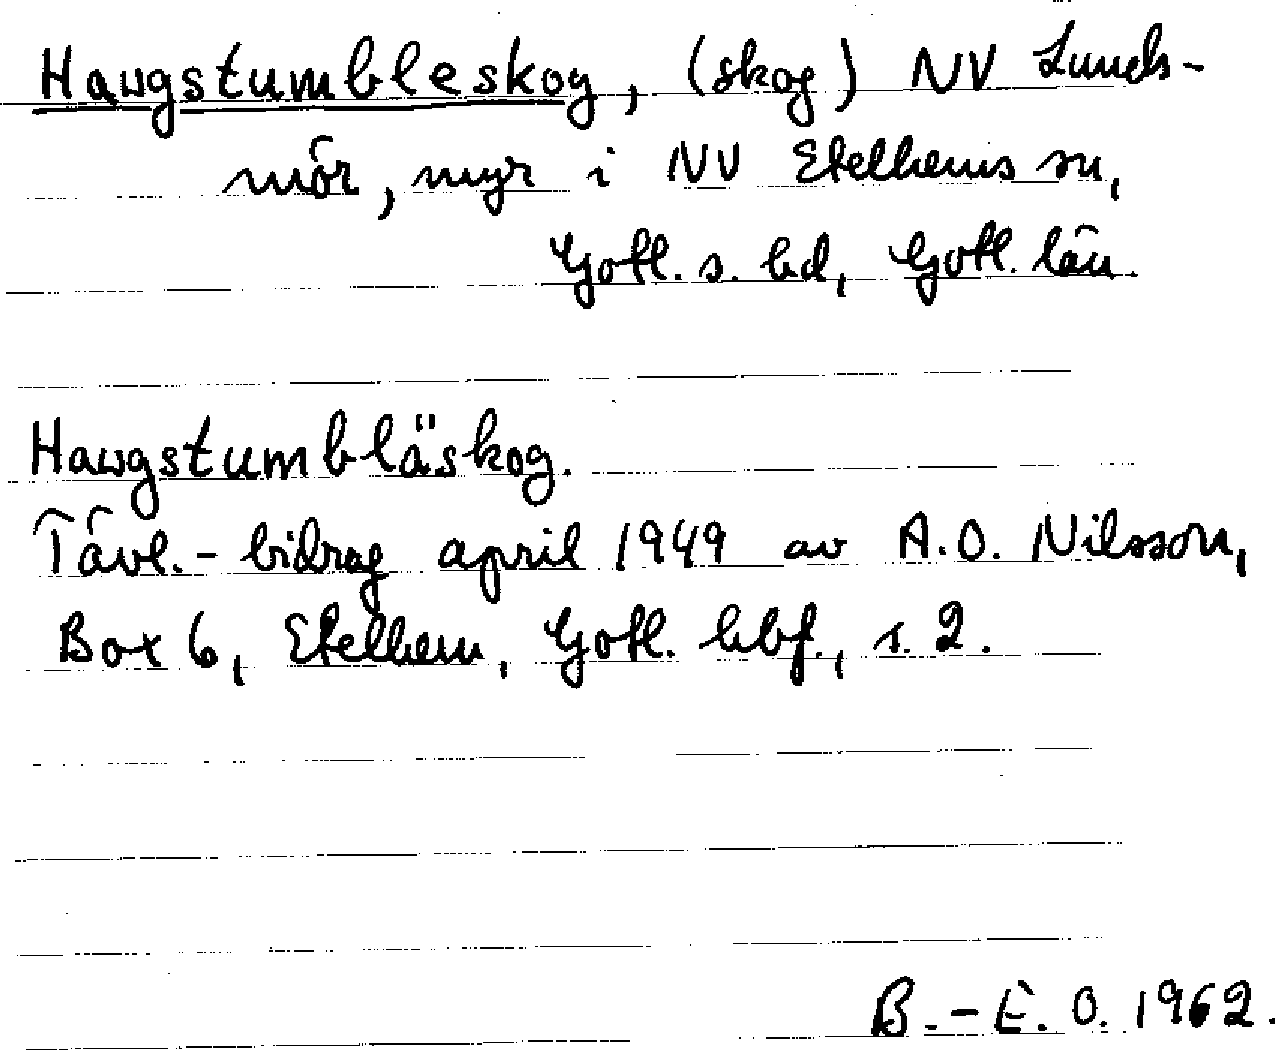 Haugstumbleskog, (skog) NV Lunds-
mör, myr i NV Etelhems sn,
Gotl. s. hd, Gotl. län.
Haugstumbläskog.
Tävl.- bidrag april 1949 av A.O. Nilsson,
Box 6, Etelhem, Gotl. hbf., s. 2.
B.-E. O. 1962.